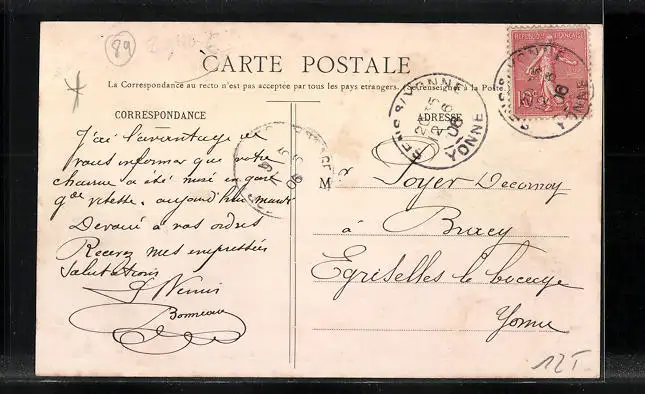 89
CARTE POSTALE
La Correspondance au recto n'est pas acceptée par tous les pays etrangers. (Se renseigner à la Poste.)
CORRESPONDANCE
ADRESSE
REPUBLIQUE FRANÇAISE
10c
SENS S/YONNE
YONNE
06
J'ai l'avantage de
vous informer que votre
charrue a été mise en gare
gde vitesse. aujourd'hui mardi
Devoué a vos ordres
Recevez mes empressées
Salutations
Bonneau
M r Soyer Decornoy
à Buxcy
Egriselles le bocage
Yonne
12 F.